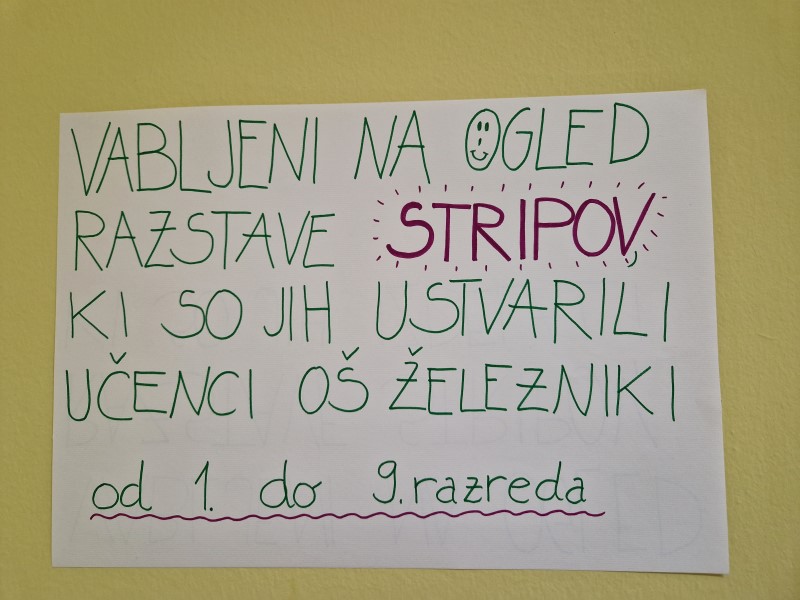 VABLJENI NA OGLED
RAZSTAVE STRIPOV,
KI SO JIH USTVARILI
UČENCI OŠ ŽELEZNIKI
od 1. do 9. razreda